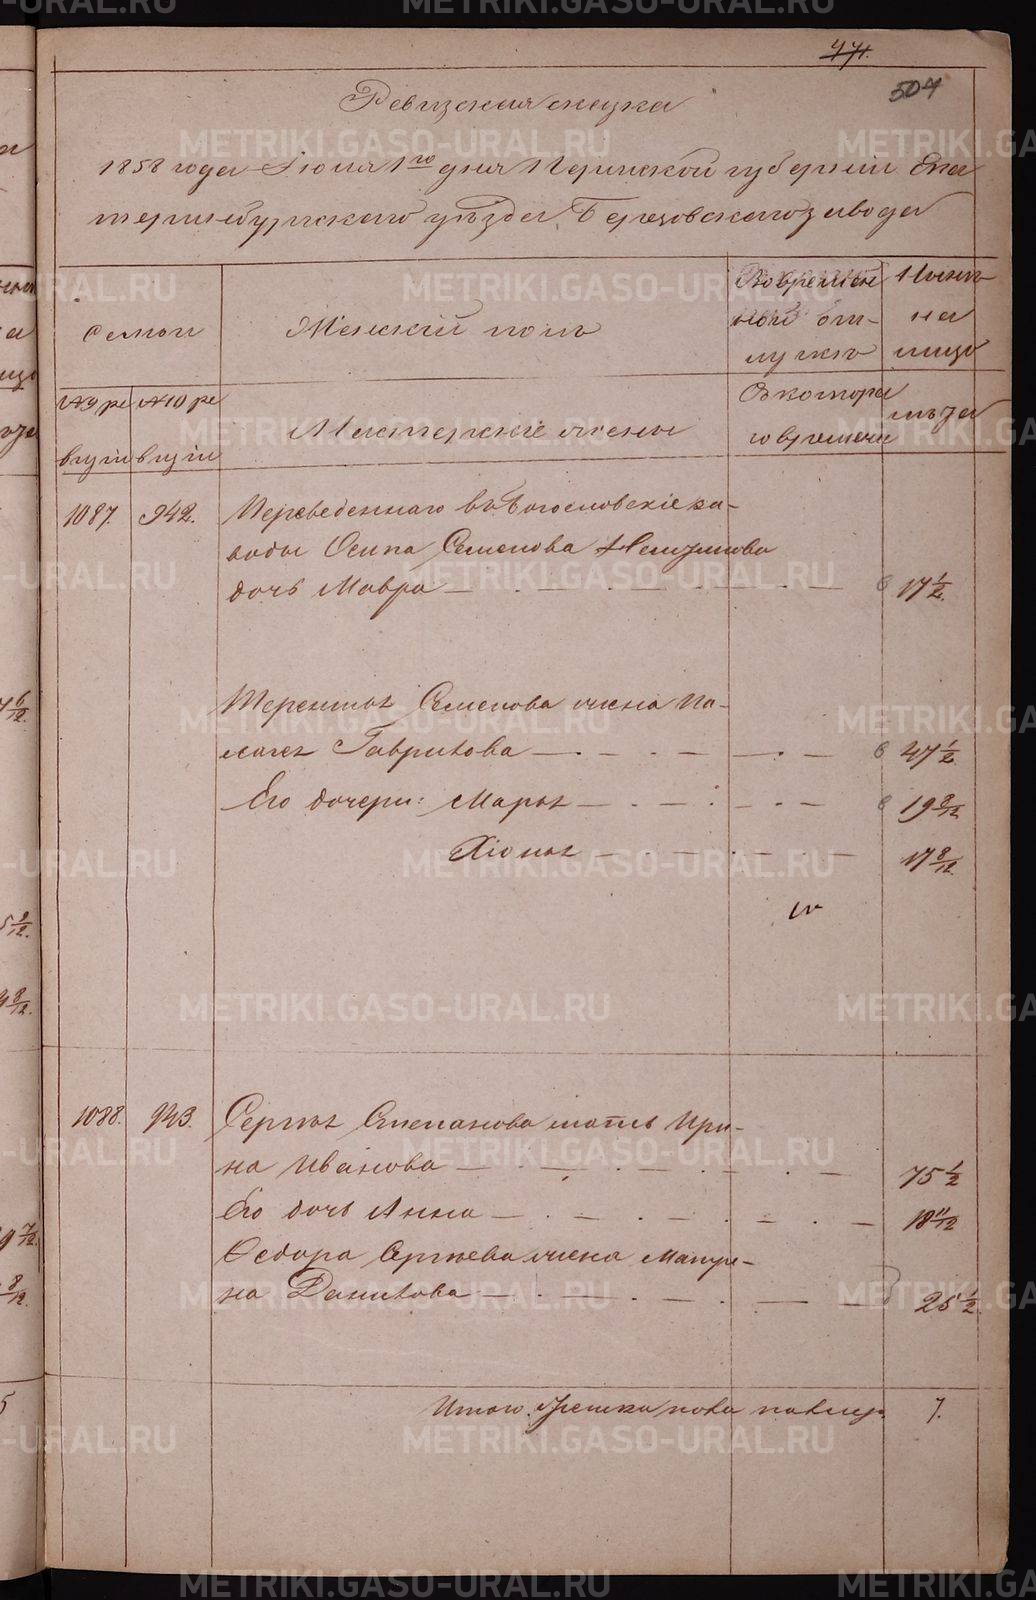 471.
504
Ревизская сказка
1858 года Июня 1го дня Пермской губернии Ека
теринбургского уезда, Березовского завода
Семьи
Женский полъ
Во времен
ной от-
лучке
Ныне
на
лицо
№ 9 ре
визии
№ 10 ре
визии
Мастерские жены
Съ котора
го времени
лета
1087. 942. Переведеннаго въ Богословские за-
воды Осипа Семенова
дочь Мавра 17 1/2
Терентья Семенова жена Па-
лагея Гаврилова 47 1/2
Его дочери: Марья 19 8/12
Хiонья 17 8/12.
1088. 943. Сергея Степанова мать Ири-
на Иванова 75 1/2
Его дочь Анна 18 11/12
Федора Сергеева жена Матре-
на Данилова 25 1/2
Итого женска пола налицо 7.
METRIKI.GASO-URAL.RU